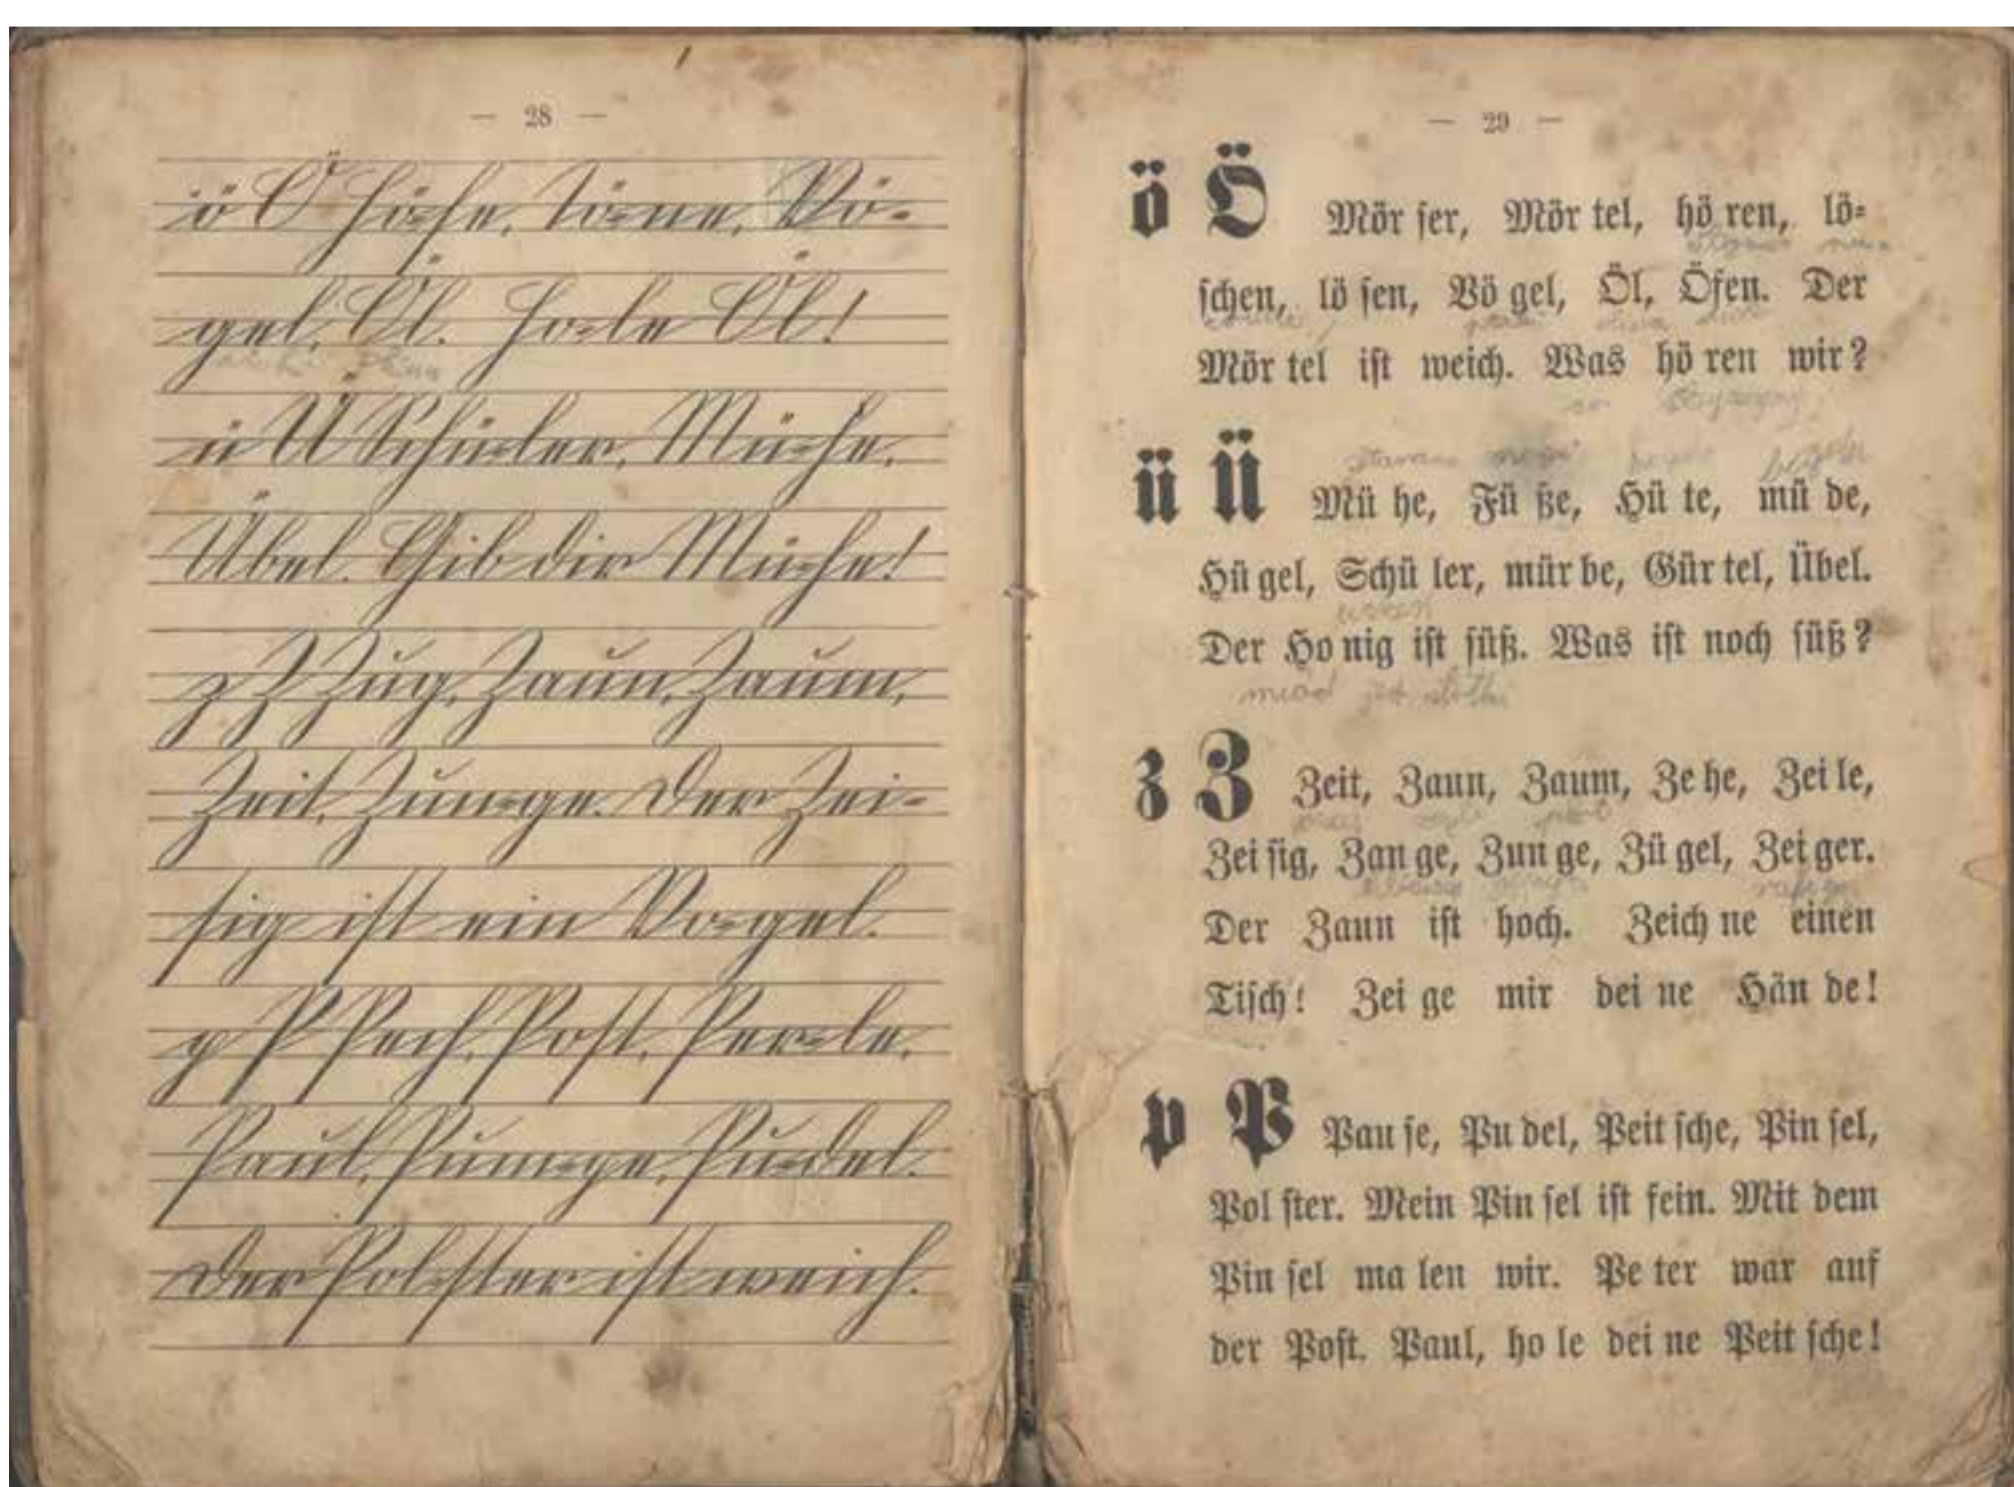 — 28 —
ö Ö Hö-he, Tö-ne, Vö-
gel, Öl. Ho-le Öl!
ü Ü Schü-ler, Mü-he,
Übel. Gib dir Mü-he!
z Z Zug, Zaun, Zaum,
Zeit, Zun-ge. Der Zei-
sig ist ein Vo-gel.
p P Pech, Post, Per-le,
Paul, Pum-pe, Pu-del.
Der Pol-ster ist weich.
— 29 —
ö Ö Mör ſer, Mör tel, hö ren, lö-
ſchen, lö ſen, Vö gel, Öl, Öfen. Der
Mör tel iſt weich. Was hö ren wir?
ü Ü Mü he, Fü ße, Hü te, mü de,
Hü gel, Schü ler, mür be, Gür tel, Übel.
Der Ho nig iſt ſüß. Was iſt noch ſüß?
miod
z Z Zeit, Zaun, Zaum, Ze he, Zei le,
Zei ſig, Zan ge, Zun ge, Zü gel, Zei ger.
Der Zaun iſt hoch. Zeich ne einen
Tiſch! Zei ge mir dei ne Hän de!
p P Pau ſe, Pu del, Peit ſche, Pin ſel,
Pol ſter. Mein Pin ſel iſt fein. Mit dem
Pin ſel ma len wir. Pe ter war auf
der Poſt. Paul, ho le dei ne Peit ſche!